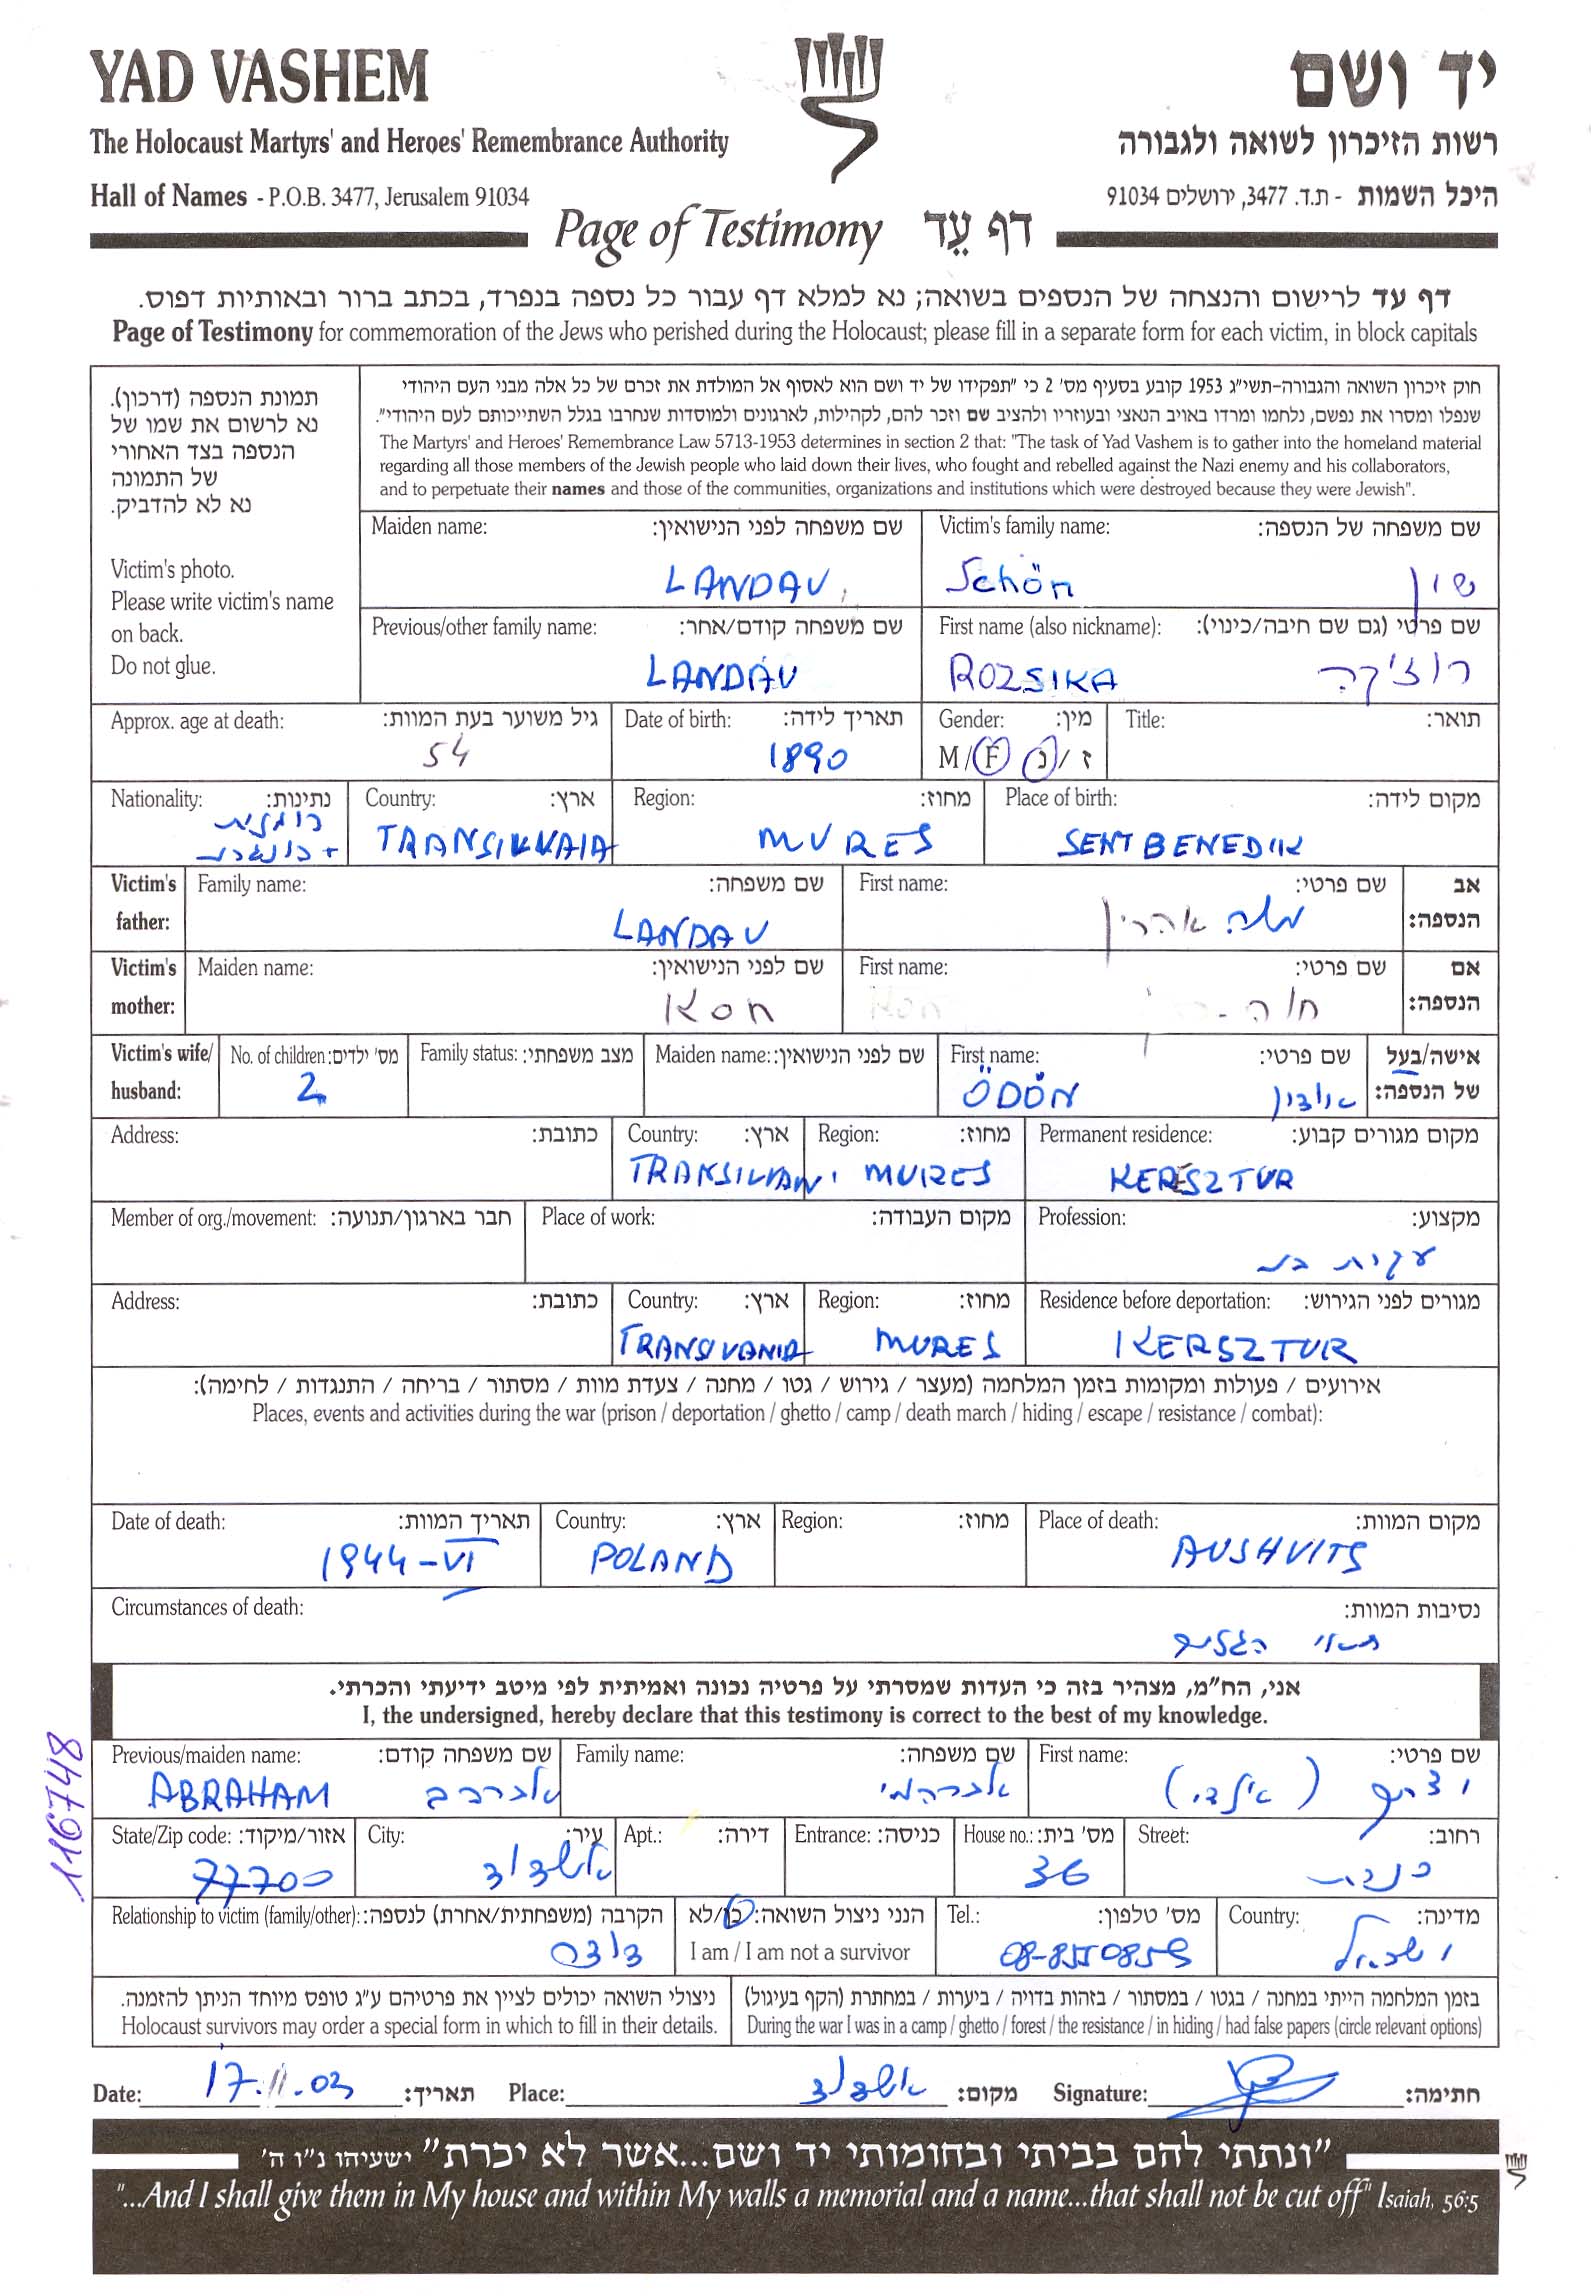 YAD VASHEM
יד ושם
The Holocaust Martyrs' and Heroes' Remembrance Authority
רשות הזיכרון לשואה ולגבורה
Hall of Names - P.O.B. 3477, Jerusalem 91034
היכל השמות - ת.ד. 3477, ירושלים 91034
Page of Testimony דף עֵד
דף עד לרישום והנצחה של הנספים בשואה; נא למלא דף עבור כל נספה בנפרד, בכתב ברור ובאותיות דפוס.
Page of Testimony for commemoration of the Jews who perished during the Holocaust; please fill in a separate form for each victim, in block capitals
תמונת הנספה (דרכון).
נא לרשום את שמו של
הנספה בצד האחורי
של התמונה
נא לא להדביק.
Victim's photo.
Please write victim's name
on back.
Do not glue.
חוק זיכרון השואה והגבורה-תשי"ג 1953 קובע בסעיף מס' 2 כי "תפקידו של יד ושם הוא לאסוף אל המולדת את זכרם של כל אלה מבני העם היהודי
שנפלו ומסרו את נפשם, נלחמו ומרדו באויב הנאצי ובעוזריו ולהציב שם וזכר להם, לקהילות, לארגונים ולמוסדות שנחרבו בגלל השתייכותם לעם היהודי".
The Martyrs' and Heroes' Remembrance Law 5713-1953 determines in section 2 that: "The task of Yad Vashem is to gather into the homeland material
regarding all those members of the Jewish people who laid down their lives, who fought and rebelled against the Nazi enemy and his collaborators,
and to perpetuate their names and those of the communities, organizations and institutions which were destroyed because they were Jewish".
Maiden name: שם משפחה לפני הנישואין: Victim's family name: שם משפחה של הנספה:
LANDAU Schön שון
Previous/other family name: שם משפחה קודם/אחר: First name (also nickname): שם פרטי (גם שם חיבה/כינוי):
LANDAU ROZSIKA רוז'יקה
Approx. age at death: גיל משוער בעת המוות: Date of birth: תאריך לידה: Gender: מין: Title: תואר:
54 1890 M / F נ / ז
Nationality: נתינות: Country: ארץ: Region: מחוז: Place of birth: מקום לידה:
MURES SENTBENEDIK
Victim's father: Family name: שם משפחה: First name: שם פרטי: אב הנספה:
LANDAU משה אהרון
Victim's mother: Maiden name: שם לפני הנישואין: First name: שם פרטי: אם הנספה:
Kon חוה
Victim's wife/ husband: No. of children: מס' ילדים: Family status: מצב משפחתי: Maiden name: שם לפני הנישואין: First name: שם פרטי: אישה/בעל של הנספה:
2 ÖDÖN אודון
Address: כתובת: Country: ארץ: Region: מחוז: Permanent residence: מקום מגורים קבוע:
MURES KERESZTUR
Member of org./movement: חבר בארגון/תנועה: Place of work: מקום העבודה: Profession: מקצוע:
עקרת בית
Address: כתובת: Country: ארץ: Region: מחוז: Residence before deportation: מגורים לפני הגירוש:
MURES KERSZTUR
אירועים / פעולות ומקומות בזמן המלחמה (מעצר / גירוש / גטו / מחנה / צעדת מוות / מסתור / בריחה / התנגדות / לחימה):
Places, events and activities during the war (prison / deportation / ghetto / camp / death march / hiding / escape / resistance / combat):
Date of death: תאריך המוות: Country: ארץ: Region: מחוז: Place of death: מקום המוות:
1944-VI POLAND AUSHVITS
Circumstances of death: נסיבות המוות:
תאי הגזים
אני, הח"מ, מצהיר בזה כי העדות שמסרתי על פרטיה נכונה ואמיתית לפי מיטב ידיעתי והכרתי.
I, the undersigned, hereby declare that this testimony is correct to the best of my knowledge.
Previous/maiden name: שם משפחה קודם: Family name: שם משפחה: First name: שם פרטי:
ABRAHAM אברהם אברהמי
State/Zip code: אזור/מיקוד: City: עיר: Apt.: דירה: Entrance: כניסה: House no.: מס' בית: Street: רחוב:
77700 אשדוד 36
Relationship to victim (family/other): הקרבה (משפחתית/אחרת) לנספה: הנני ניצול השואה: כן/לא Tel.: מס' טלפון: Country: מדינה:
I am / I am not a survivor
דודה 08-8550859 ישראל
ניצולי השואה יכולים לציין את פרטיהם ע"ג טופס מיוחד הניתן להזמנה.
Holocaust survivors may order a special form in which to fill in their details.
בזמן המלחמה הייתי במחנה / בגטו / במסתור / בזהות בדויה / ביערות / במחתרת (הקף בעיגול)
During the war I was in a camp / ghetto / forest / the resistance / in hiding / had false papers (circle relevant options)
Date: 17.11.03 תאריך: Place: אשדוד מקום: Signature: חתימה:
"ונתתי להם בביתי ובחומותי יד ושם...אשר לא יכרת" ישעיהו נ"ו ה'
"...And I shall give them in My house and within My walls a memorial and a name...that shall not be cut off" Isaiah, 56:5
116748